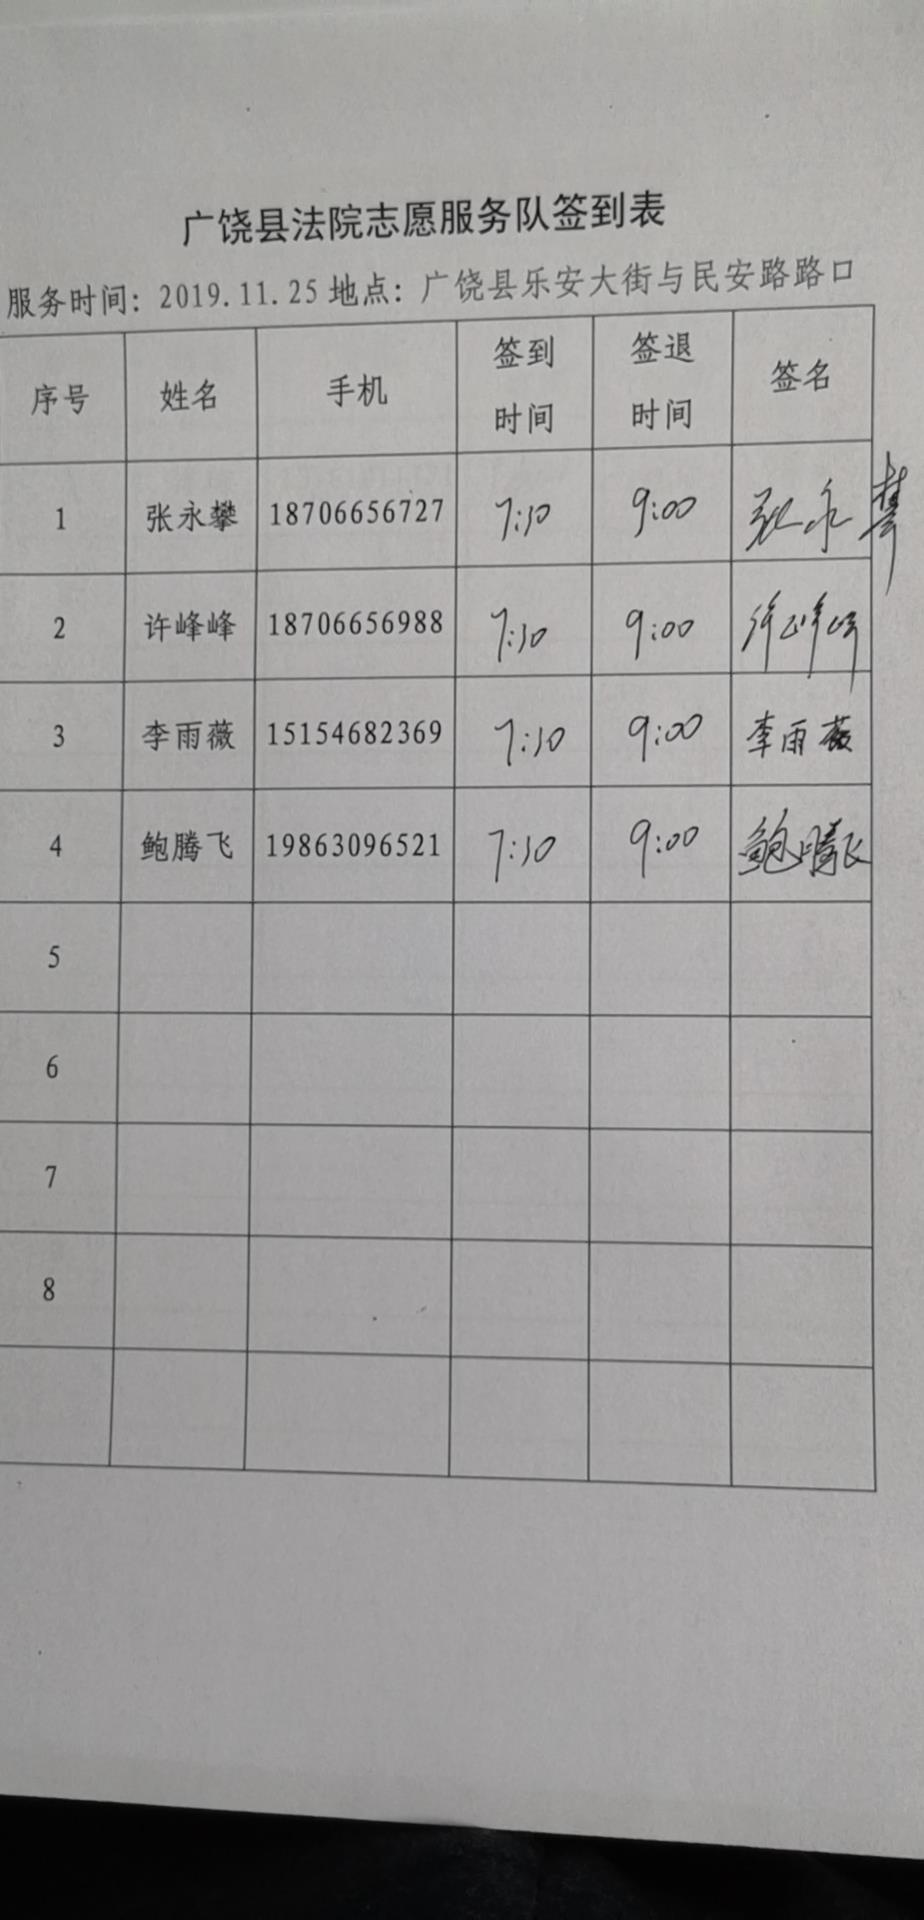 广饶县法院志愿服务队签到表
服务时间: 2019.11.25 地点: 广饶县乐安大街与民安路路口
序号 姓名 手机 签到时间 签退时间 签名
1 张永攀 18706656727 7:30 9:00 张永攀
2 许峰峰 18706656988 7:30 9:00 许峰峰
3 李雨薇 15154682369 7:30 9:00 李雨薇
4 鲍腾飞 19863096521 7:30 9:00 鲍腾飞
5
6
7
8